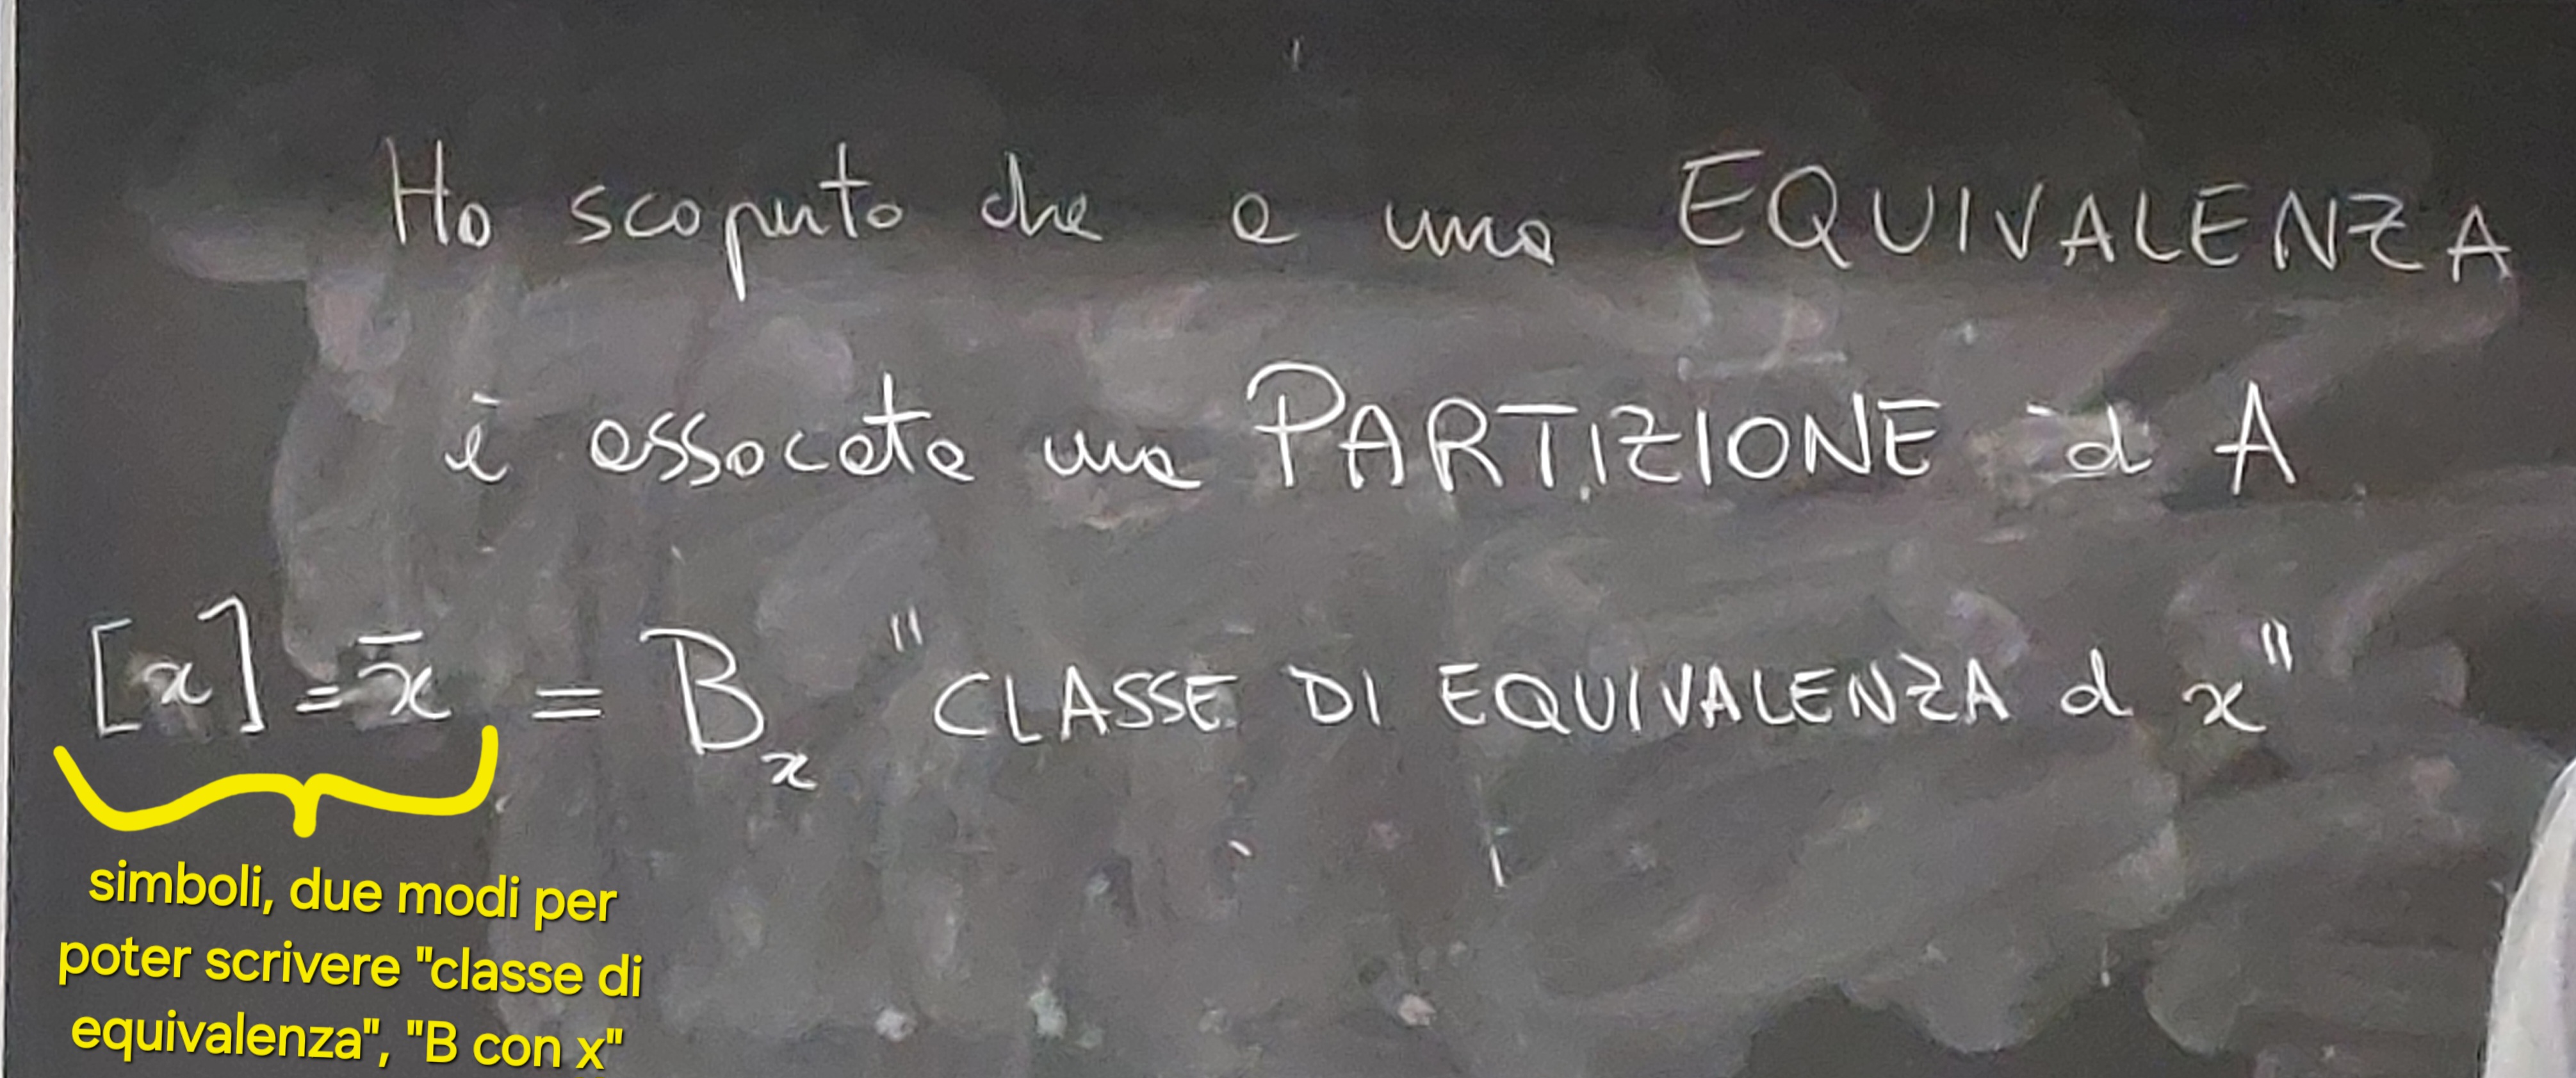 Ho scoperto che a una EQUIVALENZA
è associata una PARTIZIONE di A
[x] = x̄ = Bₓ "CLASSE DI EQUIVALENZA di x"
simboli, due modi per
poter scrivere "classe di
equivalenza", "B con x"